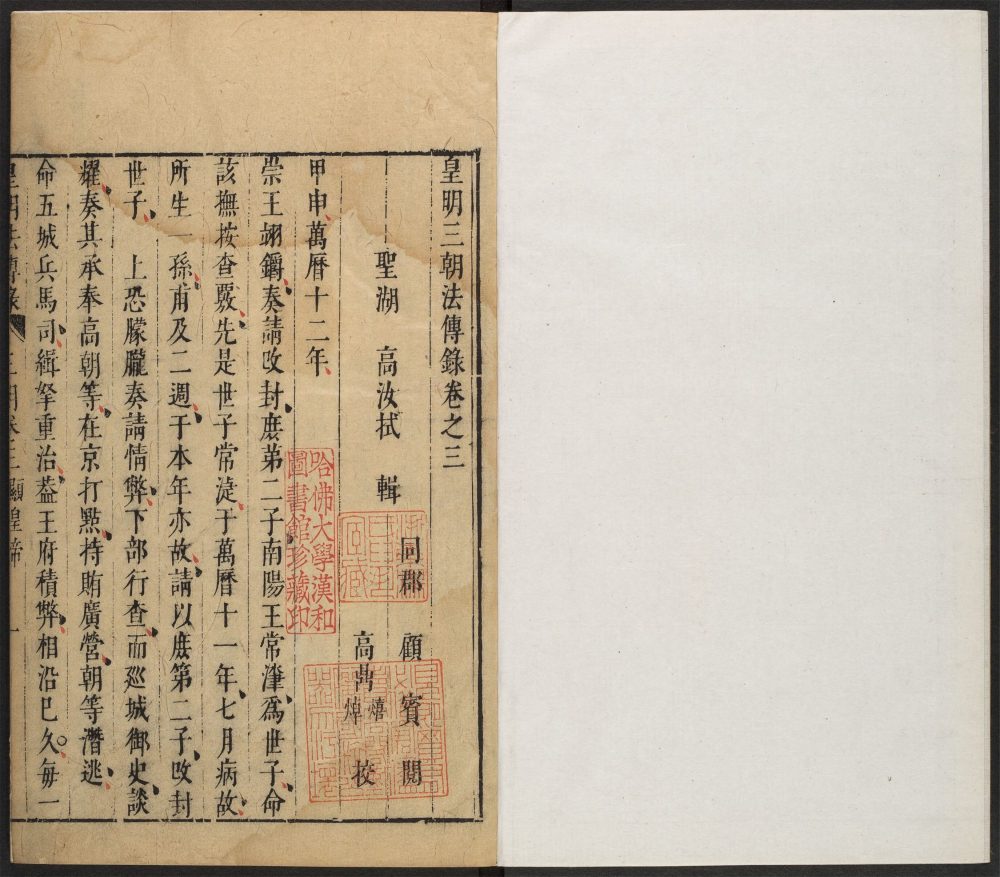 皇明三朝法傳錄卷之三
同郡 顧賓 閱
聖湖 高汝栻 輯
高鼎熺 焯 校
甲申萬曆十二年
崇王翊鑈奏請改封庶第二子南陽王常津為世子命
該撫按查覈先是世子常湜于萬曆十一年七月病故
所生一孫甫及二週于本年亦故請以庶第二子改封
世子 上恐朦朧奏請情弊下部行查而廵城御史談
耀奏其承奉高朝等在京打點持賄廣營朝等潛逃
命五城兵馬司緝拏重治葢王府積弊相沿已久每一
皇明法傳錄 三朝卷三 顯皇帝 一
哈佛大學漢和
圖書館珍藏印